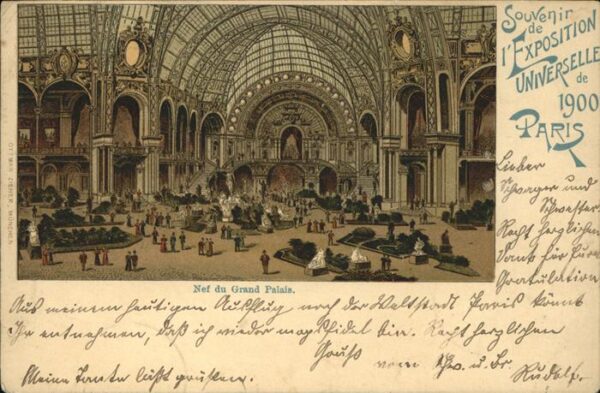 Souvenir
de
l'EXPOSITION
UNIVERSELLE
de
1900
PARIS
OTTMAR ZIEHER, MÜNCHEN
Nef du Grand Palais.
Lieber
Schwager und
Schwester.
Recht herzlichen
Dank für Eure
Gratulation
Aus meinem heutigen Ausflug nach der Weltstadt Paris könnt
Ihr entnehmen, daß ich wieder mopsfidel bin. Recht herzlichen
Gruß
vom Schw. u. Br.
Rudolf.
Meine Tante läßt grüßen.